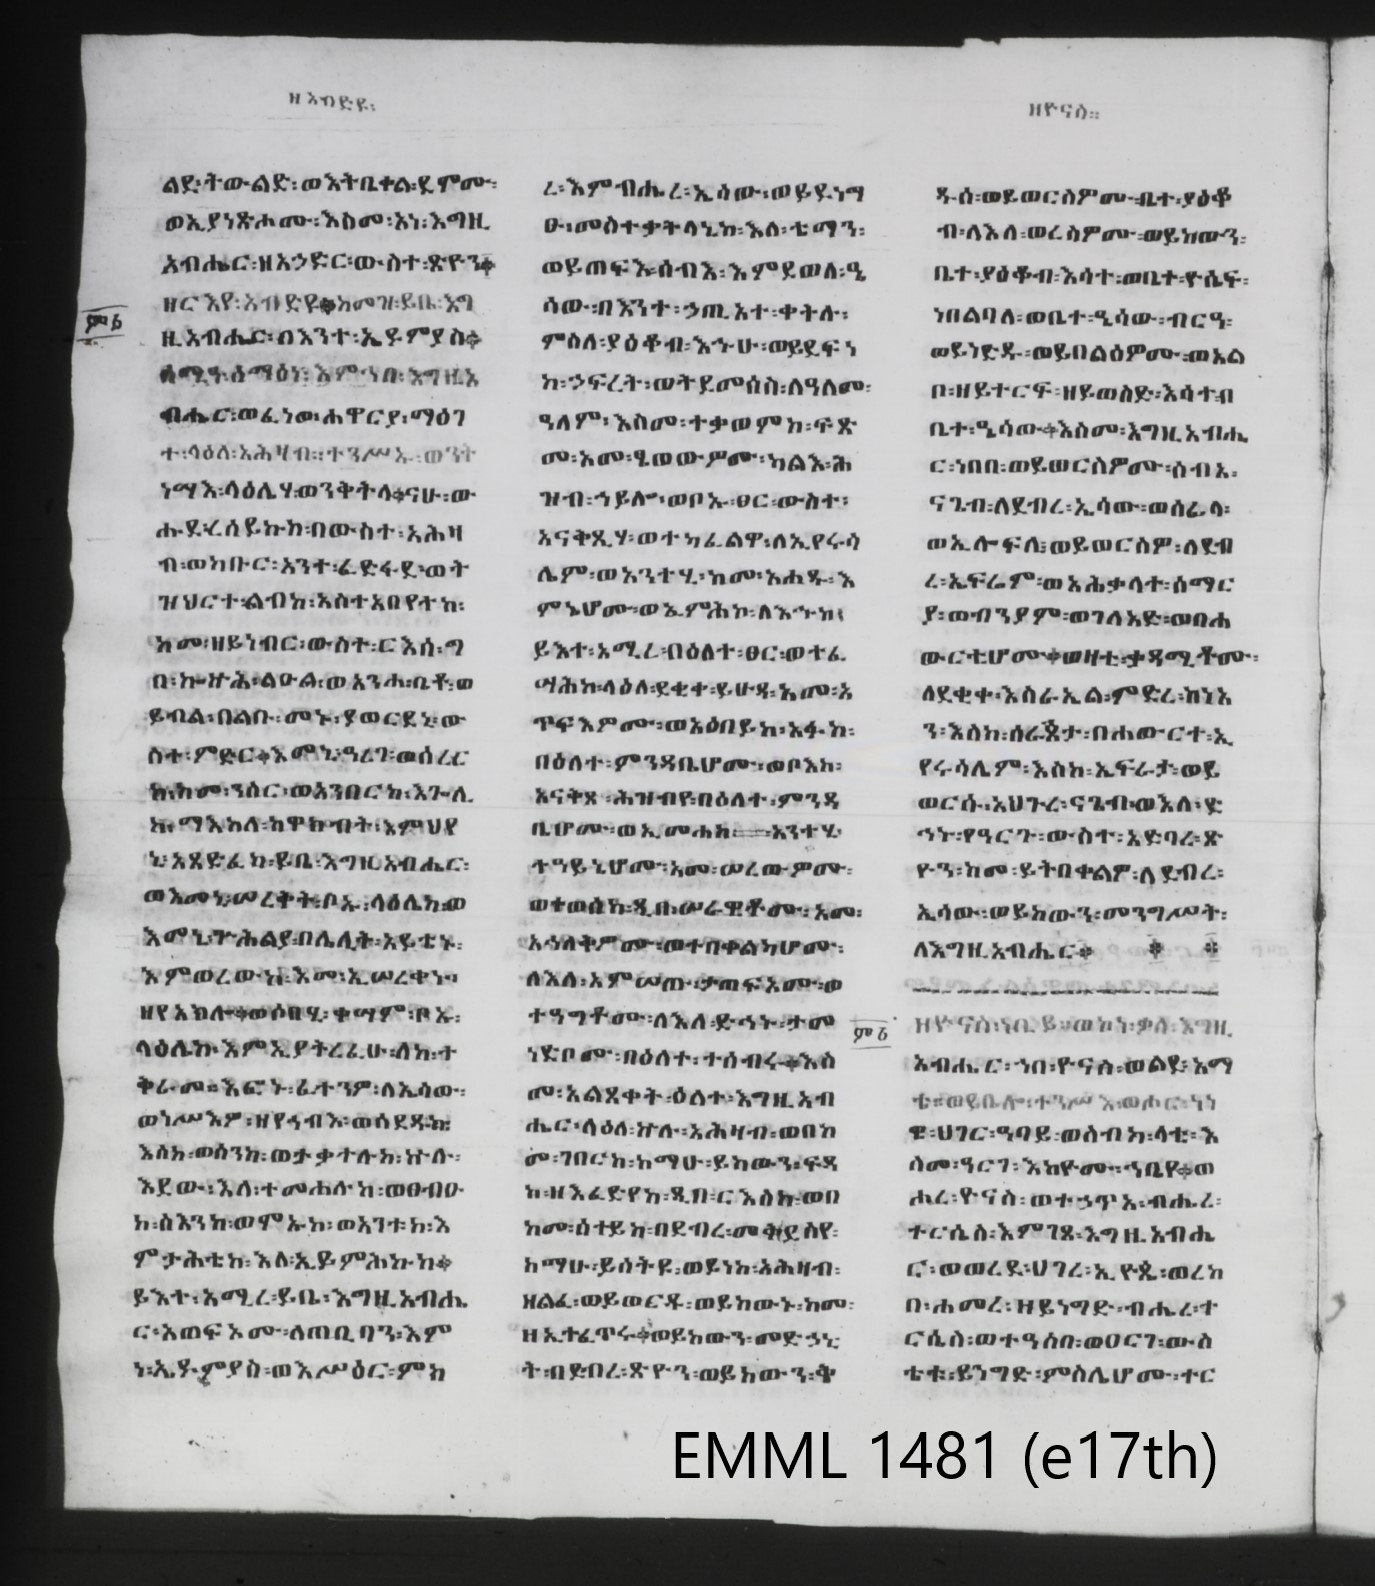 ዘአብድዩ፡
ዘዮናስ።
ልደ፡ትውልድ፡ወእትቤቀል፡ደምሙ፡
ወኢያነጽሖሙ፡እስመ፡አነ፡እግዚ
አብሔር፡ዘአኃድር፡ውስተ፡ጽዮን፨
ዘርእየ፡አብድዩ፨ከመዝ፡ይቤ፡እግ
ዚአብሔር፡በእንተ፡ኤዶምያስ፨
ሰሚዓ፡ሰማዕነ፡እምኀበ፡እግዚአ
ብሔር፡ወፈነወ፡ሐዋርያ፡ማዕገ
ተ፡ላዕለ፡አሕዛብ።ተንሥኡ፡ወንት
ነሣእ፡ላዕሌሃ፡ወንቅትላ፨ናሁ፡ው
ሑደ፡ረሰይኩከ፡በውስተ፡አሕዛ
ብ፡ወክቡር፡አንተ፡ፈድፋደ፡ወት
ዝህርተ፡ልብከ፡አስተአበየተከ፡
ከመ፡ዘይነብር፡ውስተ፡ርእሰ፡ግ
በ፡ኰኵሕ፡ልዑል፡ወአንሐ፡ቤቶ፡ወ
ይብል፡በልቡ፡መኑ፡ያወርደኒ፡ው
ስተ፡ምድር፨እመኒ፡ዓረገ፡ወሰረር
ከ፡ከመ፡ንስር፡ወአንበርከ፡እጐሊ
ከ፡ማእከለ፡ከዋክብት፡እምህየ
ኒ፡አጸድፈከ፡ይቤ፡እግዚአብሔር፡
ወእመኒ፡ሠረቅት፡ቦኡ፡ላዕሌከ፡ወ
እመኒ፡ጕሕልያ፡በሌሊት፡አይቴኑ፡
እምወረውከ፡እመ፡ኢሠረቀኑ፡
ዘየአክሎ፨ወሶበሂ፡ቀማም፡ቦኡ፡
ላዕሌከ፡እምኢያትረፈሁ፡ለከ፡ተ
ቅራመ።እፎኑ፡ፈተንዎ፡ለኤሳው፡
ወነሥእዎ፡ዘየኀብእ፡ወሰደዱከ፡
እስከ፡ወሰንከ፡ወታቃተሉከ፡ኵሉ፡
ዕደው፡እለ፡ተመሐሉከ፡ወፀብዑ
ከ፡ሰእንከ፡ወሞኡከ፡ወአገቱከ፡እ
ምታሕቴከ፡እለ፡ኢይምሕኩከ፨
ይእተ፡አሚረ፡ይቤ፡እግዚአብሔ
ር፡አጠፍኦሙ፡ለጠቢባን፡እም
ነ፡ኤዶምያስ፡ወእሥዕር፡ምክ
ረ፡እምብሔረ፡ኢሳው፡ወይደነግ
ፁ፡መስተቃትላኒከ፡እለ፡ቴማን፡
ወይጠፍእ፡ሰብእ፡እምደወለ፡ዔ
ሳው፡በእንተ፡ኃጢአተ፡ቀትሉ፡
ምስለ፡ያዕቆብ፡እኍሁ፡ወይደፍነ
ከ፡ኃፍረት፡ወትደመሰስ፡ለዓለመ፡
ዓለም፡እስመ፡ተቃወምከ፡ፍጽ
መ፡አመ፡ፄወውሥሙ፡ካልእ፡ሕ
ዝብ፡ኀይሎ፡ወቦኡ፡ፀር፡ውስተ፡
አናቅጺሃ፡ወተካፈልዋ፡ለኢየሩሳ
ሌም፡ወአንተሂ፡ከመ፡አሐዱ፡እ
ምኔሆሙ፡ወኢምሕኮ፡ለእኁከ፡
ይእተ፡አሚረ፡በዕለተ፡ፀር፡ወተፈ
ሣሕከ፡ላዕለ፡ደቂቀ፡ይሁዳ፡አመ፡አ
ጥፍእዎሙ፡ወአዕበይከ፡አፉከ፡
በዕለተ፡ምንዳቤሆሙ፡ወቦእከ፡
አናቅጸ፡ሕዝብየ፡በዕለተ፡ምንዳ
ቤሆሙ፡ወኢመሐከ፡አንተሂ፡
ትዓይኒሆሙ፡አመ፡ሠረውዎሙ፡
ወተወሰከ፡ዲበ፡ሠራዊቶሙ፡አመ፡
አኅለቅዎሙ፡ወተበቀልካሆሙ፡
ለእለ፡አምሠጡ፡ታጠፍኦሙ፡ወ
ተዓግቶሙ፡ለእለ፡ድኅኑ፡ታመ
ነድቦሙ፡በዕለተ፡ተሰብሩ፨እስ
መ፡አልጸቀት፡ዕለተ፡እግዚአብ
ሔር፡ላዕለ፡ኵሉ፡አሕዛብ፡ወበከ
መ፡ገበርከ፡ከማሁ፡ይከውን፡ፍዳ
ከ፡ዘእፈድየከ፡ዲበ፡ርእስከ፡ወበ
ከመ፡ሰተይከ፡በደብረ፡መቅደስየ፡
ከማሁ፡ይሰትዩ፡ወይነክ፡አሕዛብ፡
ዘልፈ፡ወይወርዱ፡ወይከውኑ፡ከመ፡
ዘኢተፈጥሩ፨ወይከውን፡መድኃኒ
ት፡በደብረ፡ጽዮን፡ወይከውን፡ቅ
ዱሰ፡ወይወርስዎሙ፡ቤተ፡ያዕቆ
ብ፡ለእለ፡ወረስዎሙ፡ወይከውን፡
ቤተ፡ያዕቆብ፡እሳተ፡ወቤተ፡ዮሴፍ፡
ነበልባለ፡ወቤተ፡ዔሳው፡ብርዓ፡
ወይነድዱ፡ወይበልዕዎሙ፡ወአል
ቦ፡ዘይተርፍ፡ዘይወስድ፡እሳተ፡በ
ቤተ፡ዔሳው፨እስመ፡እግዚአብሔ
ር፡ነበበ፡ወይወርስዎሙ፡ሰብአ፡
ናጌብ፡ለደብረ፡ኢሳው፡ወሰፌላ፡
ወኢሎፍለ፡ወይወርስዎ፡ለደብ
ረ፡ኤፍሬም፡ወአሕቃላተ፡ሰማር
ያ፡ወብንያም፡ወገለአድ፡ወበሐ
ውርቲሆሙ፨ወዛቲ፡ቃዳሚቶሙ፡
ለደቂቀ፡እስራኢል፡ምድረ፡ከነአ
ን፡እስከ፡ሰራጵታ፡በሐውርተ፡ኢ
የሩሳሌም፡እስከ፡ኤፍራታ፡ወይ
ወርሱ፡አህጉረ፡ናጌብ፡ወእለ፡ድ
ኅኑ፡የዓርጉ፡ውስተ፡አድባረ፡ጽ
ዮን፡ከመ፡ይትበቀልዎ፡ለደብረ፡
ኢሳው፡ወይከውን፡መንግሥት፡
ለእግዚአብሔር፨ ፨ ፨
ዘዮናስ፡ነቢይ።ወኮነ፡ቃለ፡እግዚ
አብሔር፡ኀበ፡ዮናስ፡ወልደ፡አማ
ቴ፡፡ወይቤሎ፡ተንሥእ፡ወሖር፡ነነ
ዌ፡ሀገር፡ዓባይ፡ወስብክ፡ላቲ፡እ
ስመ፡ዓርገ፡እከዮሙ፡ኀቤየ፨ወ
ሖረ፡ዮናስ፡ወተኃጥአ፡ብሔረ፡
ተርሴስ፡እምገጸ፡እግዚአብሔ
ር፡ወወረደ፡ሀገረ፡ኢዮጴ፡ወረከ
በ፡ሐመረ፡ዘይነግድ፡ብሔረ፡ተ
ርሴስ፡ወተዓሰበ፡ወዐርገ፡ውስ
ቴቱ፡ይንግድ፡ምስሌሆሙ፡ተር
EMML 1481 (e17th)